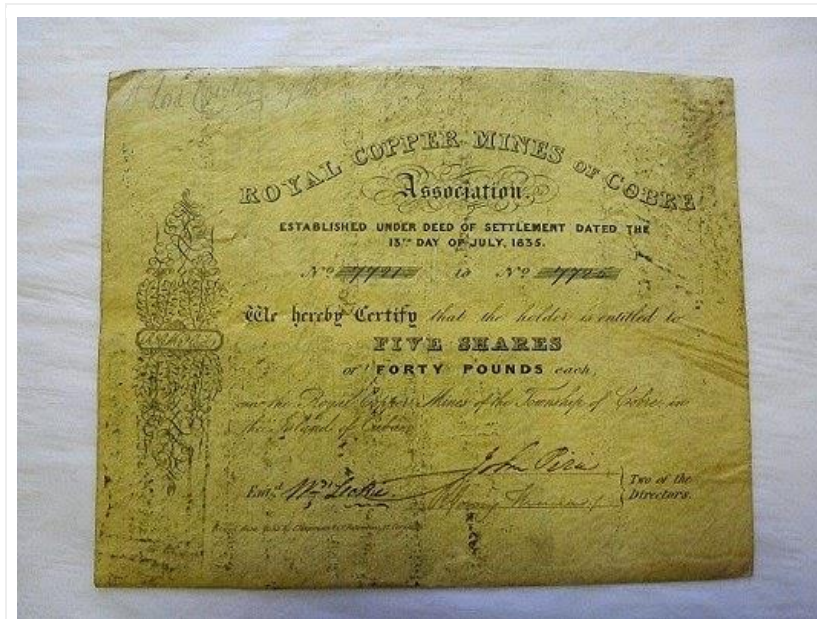 ROYAL COPPER MINES OF COBRE
Association.
ESTABLISHED UNDER DEED OF SETTLEMENT DATED THE
13TH DAY OF JULY, 1835.
No 7721 to No 7725
We hereby Certify that the holder is entitled to
FIVE SHARES
of FORTY POUNDS each,
in the Royal Copper Mines of the Township of Cobre in
the Island of Cuba.
John Pirie
Entd. Wm Leckie. Two of the
Directors.